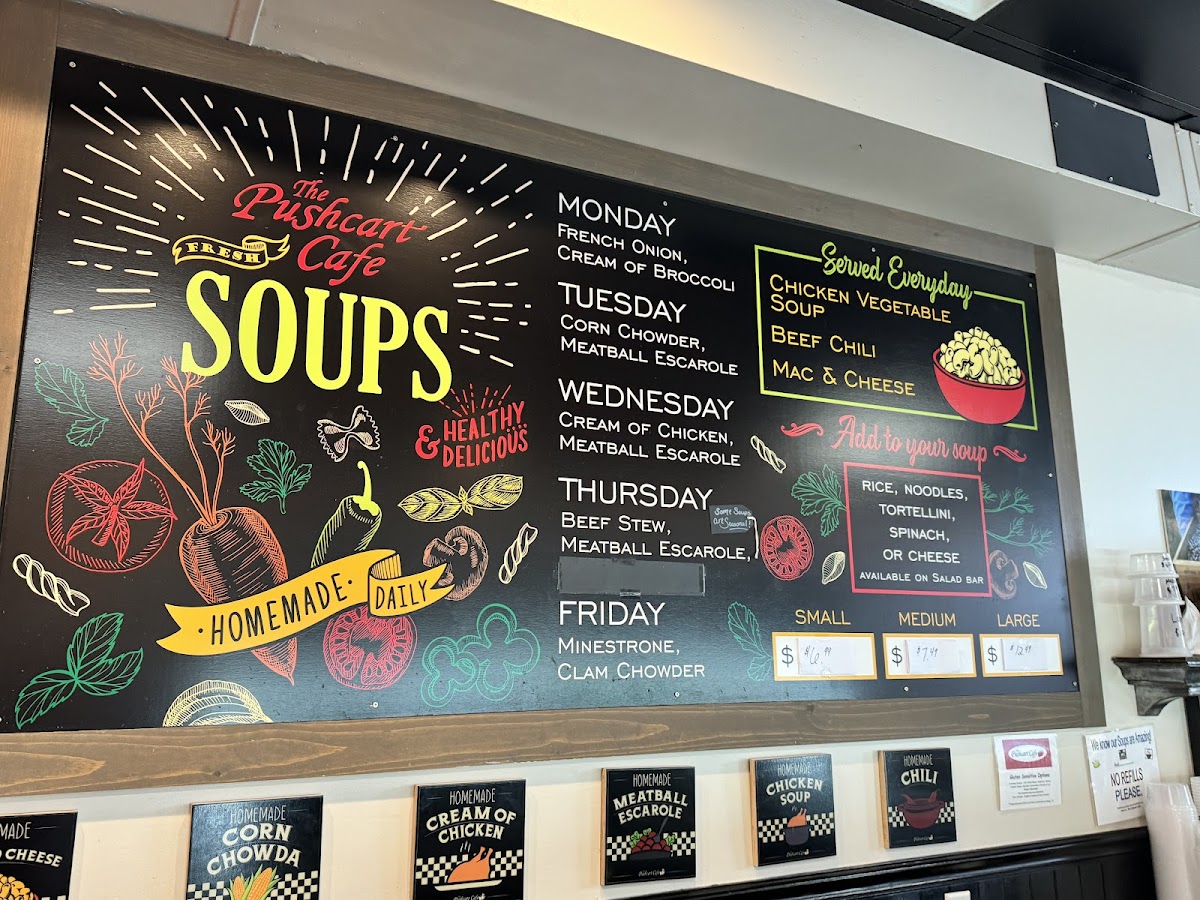 The
Pushcart
Cafe
FRESH
SOUPS
& HEALTHY
DELICIOUS
· HOMEMADE · DAILY
MONDAY
FRENCH ONION,
CREAM OF BROCCOLI
TUESDAY
CORN CHOWDER,
MEATBALL ESCAROLE
WEDNESDAY
CREAM OF CHICKEN,
MEATBALL ESCAROLE
THURSDAY
BEEF STEW,
MEATBALL ESCAROLE,
Some Soups
are Seasonal
FRIDAY
MINESTRONE,
CLAM CHOWDER
Served Everyday
CHICKEN VEGETABLE
SOUP
BEEF CHILI
MAC & CHEESE
Add to your soup
RICE, NOODLES,
TORTELLINI,
SPINACH,
OR CHEESE
AVAILABLE ON SALAD BAR
SMALL MEDIUM LARGE
$ $6.99 $ $7.49 $ $12.49
MADE
CHEESE
HOMEMADE
CORN
CHOWDA
HOMEMADE
CREAM OF
CHICKEN
Pushcart Cafe
HOMEMADE
MEATBALL
ESCAROLE
Pushcart Cafe
HOMEMADE
CHICKEN
SOUP
Pushcart Cafe
HOMEMADE
CHILI
Pushcart Cafe
Pushcart Cafe
Gluten Sensitive Options
We know our Soups are Amazing!
NO REFILLS
PLEASE.